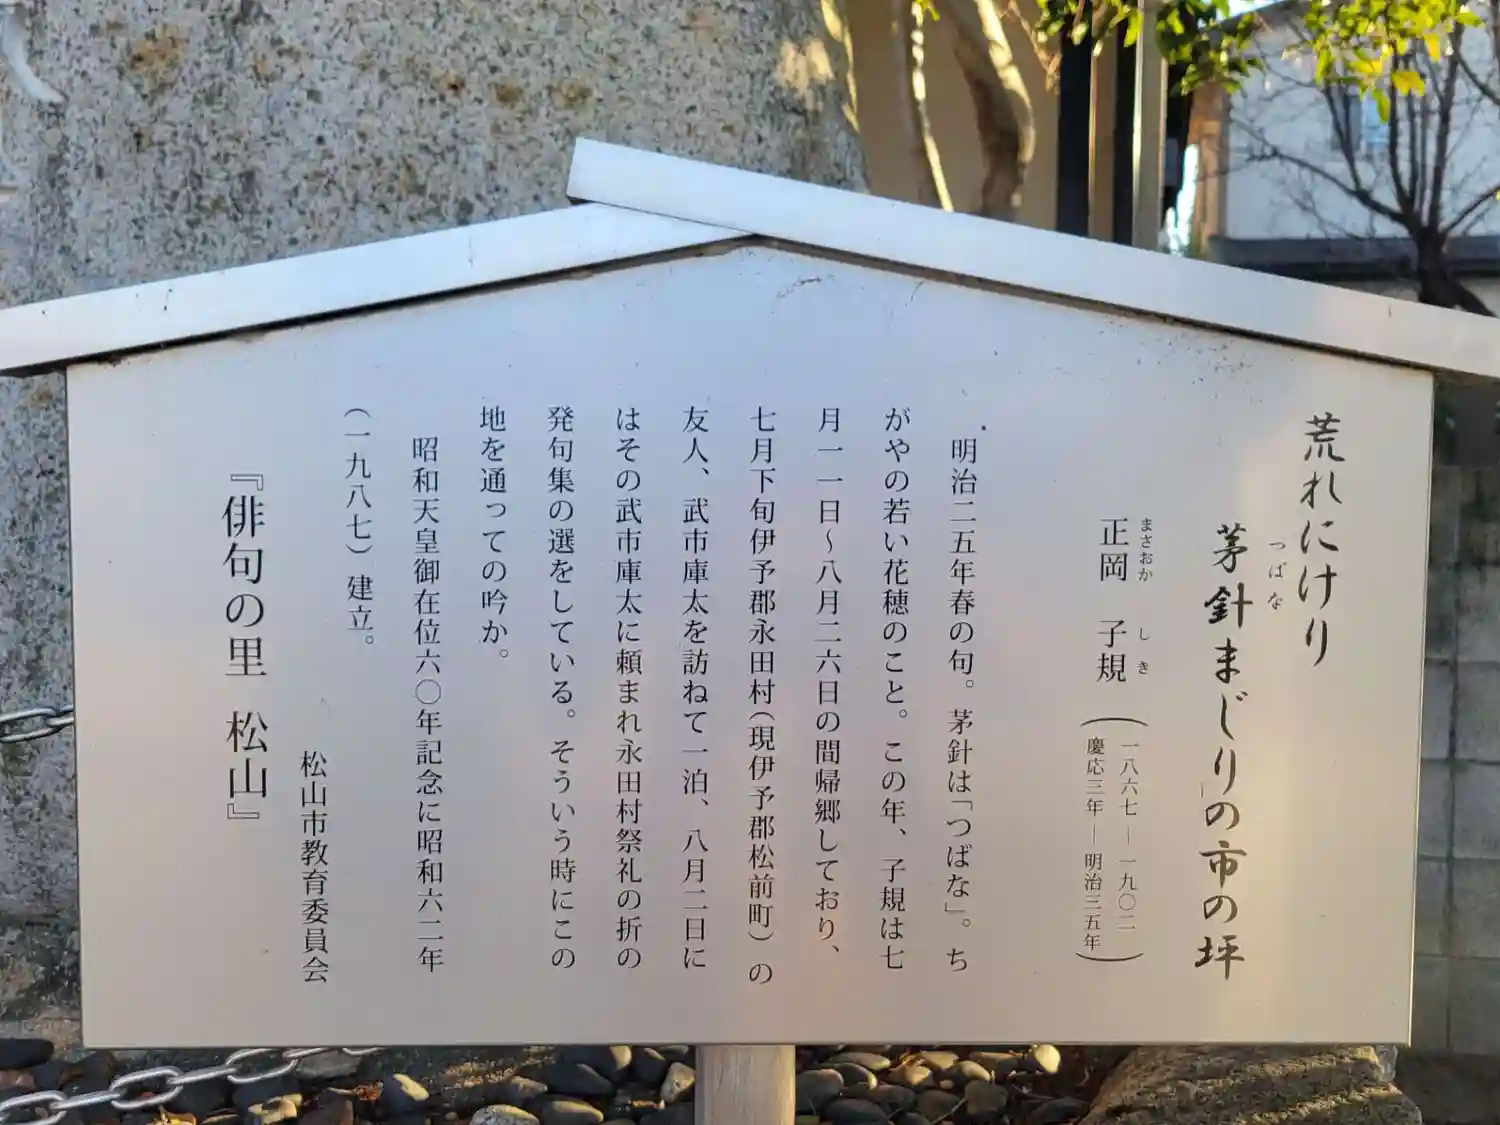 荒れにけり
つばな
茅針まじりの市の坪
まさおか しき
正岡 子規
(一八六七―一九〇二
慶応三年―明治三五年)
明治二五年春の句。茅針は「つばな」。ち
がやの若い花穂のこと。この年、子規は七
月一一日〜八月二六日の間帰郷しており、
七月下旬伊予郡永田村(現伊予郡松前町)の
友人、武市庫太を訪ねて一泊、八月二日に
はその武市庫太に頼まれ永田村祭礼の折の
発句集の選をしている。そういう時にこの
地を通っての吟か。
昭和天皇御在位六〇年記念に昭和六二年
(一九八七)建立。
松山市教育委員会
『俳句の里 松山』